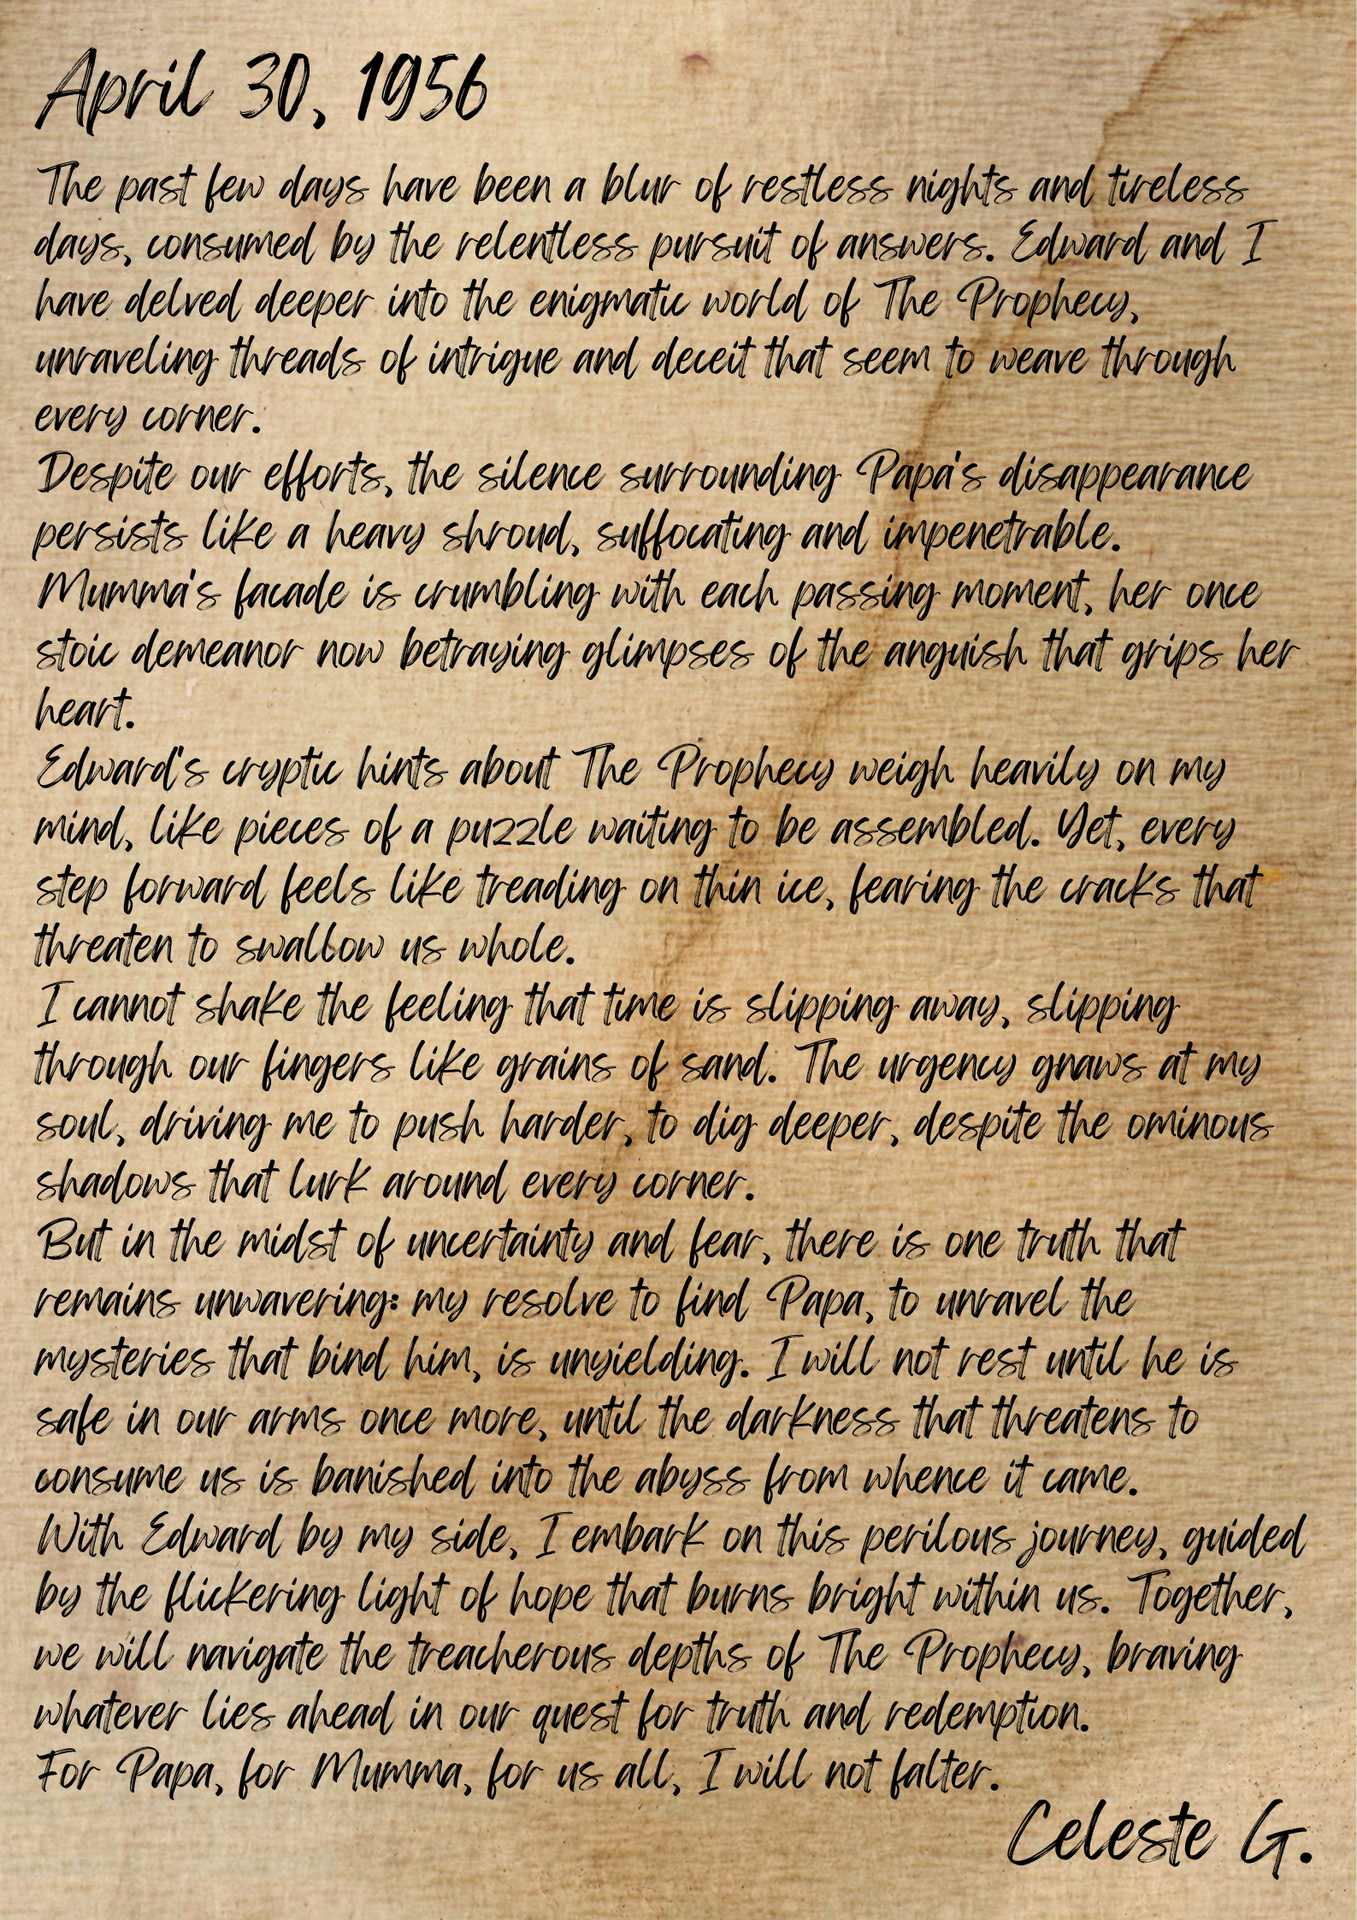 April 30, 1956
The past few days have been a blur of restless nights and tireless
days, consumed by the relentless pursuit of answers. Edward and I
have delved deeper into the enigmatic world of The Prophecy,
unraveling threads of intrigue and deceit that seem to weave through
every corner.
Despite our efforts, the silence surrounding Papa's disappearance
persists like a heavy shroud, suffocating and impenetrable.
Mumma's facade is crumbling with each passing moment, her once
stoic demeanor now betraying glimpses of the anguish that grips her
heart.
Edward's cryptic hints about The Prophecy weigh heavily on my
mind, like pieces of a puzzle waiting to be assembled. Yet, every
step forward feels like treading on thin ice, fearing the cracks that
threaten to swallow us whole.
I cannot shake the feeling that time is slipping away, slipping
through our fingers like grains of sand. The urgency gnaws at my
soul, driving me to push harder, to dig deeper, despite the ominous
shadows that lurk around every corner.
But in the midst of uncertainty and fear, there is one truth that
remains unwavering: my resolve to find Papa, to unravel the
mysteries that bind him, is unyielding. I will not rest until he is
safe in our arms once more, until the darkness that threatens to
consume us is banished into the abyss from whence it came.
With Edward by my side, I embark on this perilous journey, guided
by the flickering light of hope that burns bright within us. Together,
we will navigate the treacherous depths of The Prophecy, braving
whatever lies ahead in our quest for truth and redemption.
For Papa, for Mumma, for us all, I will not falter.
Celeste G.